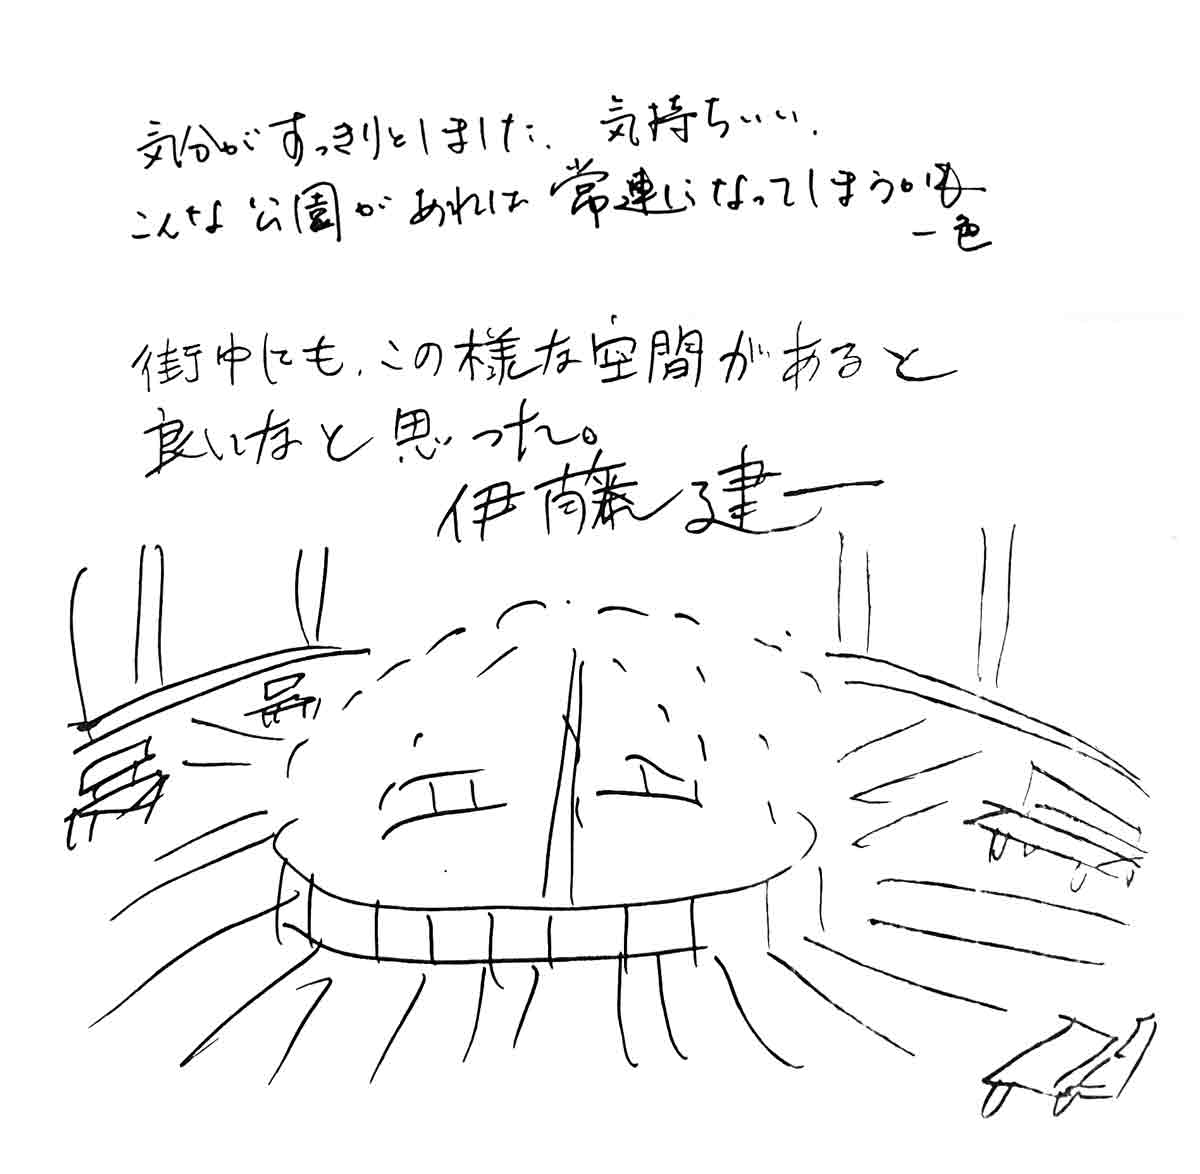 気分がすっきりとしました. 気持ちいい.
こんな公園があれば常連になってしまうかも
一色
街中にも、この様な空間があると
良いなと思った。
伊藤建一